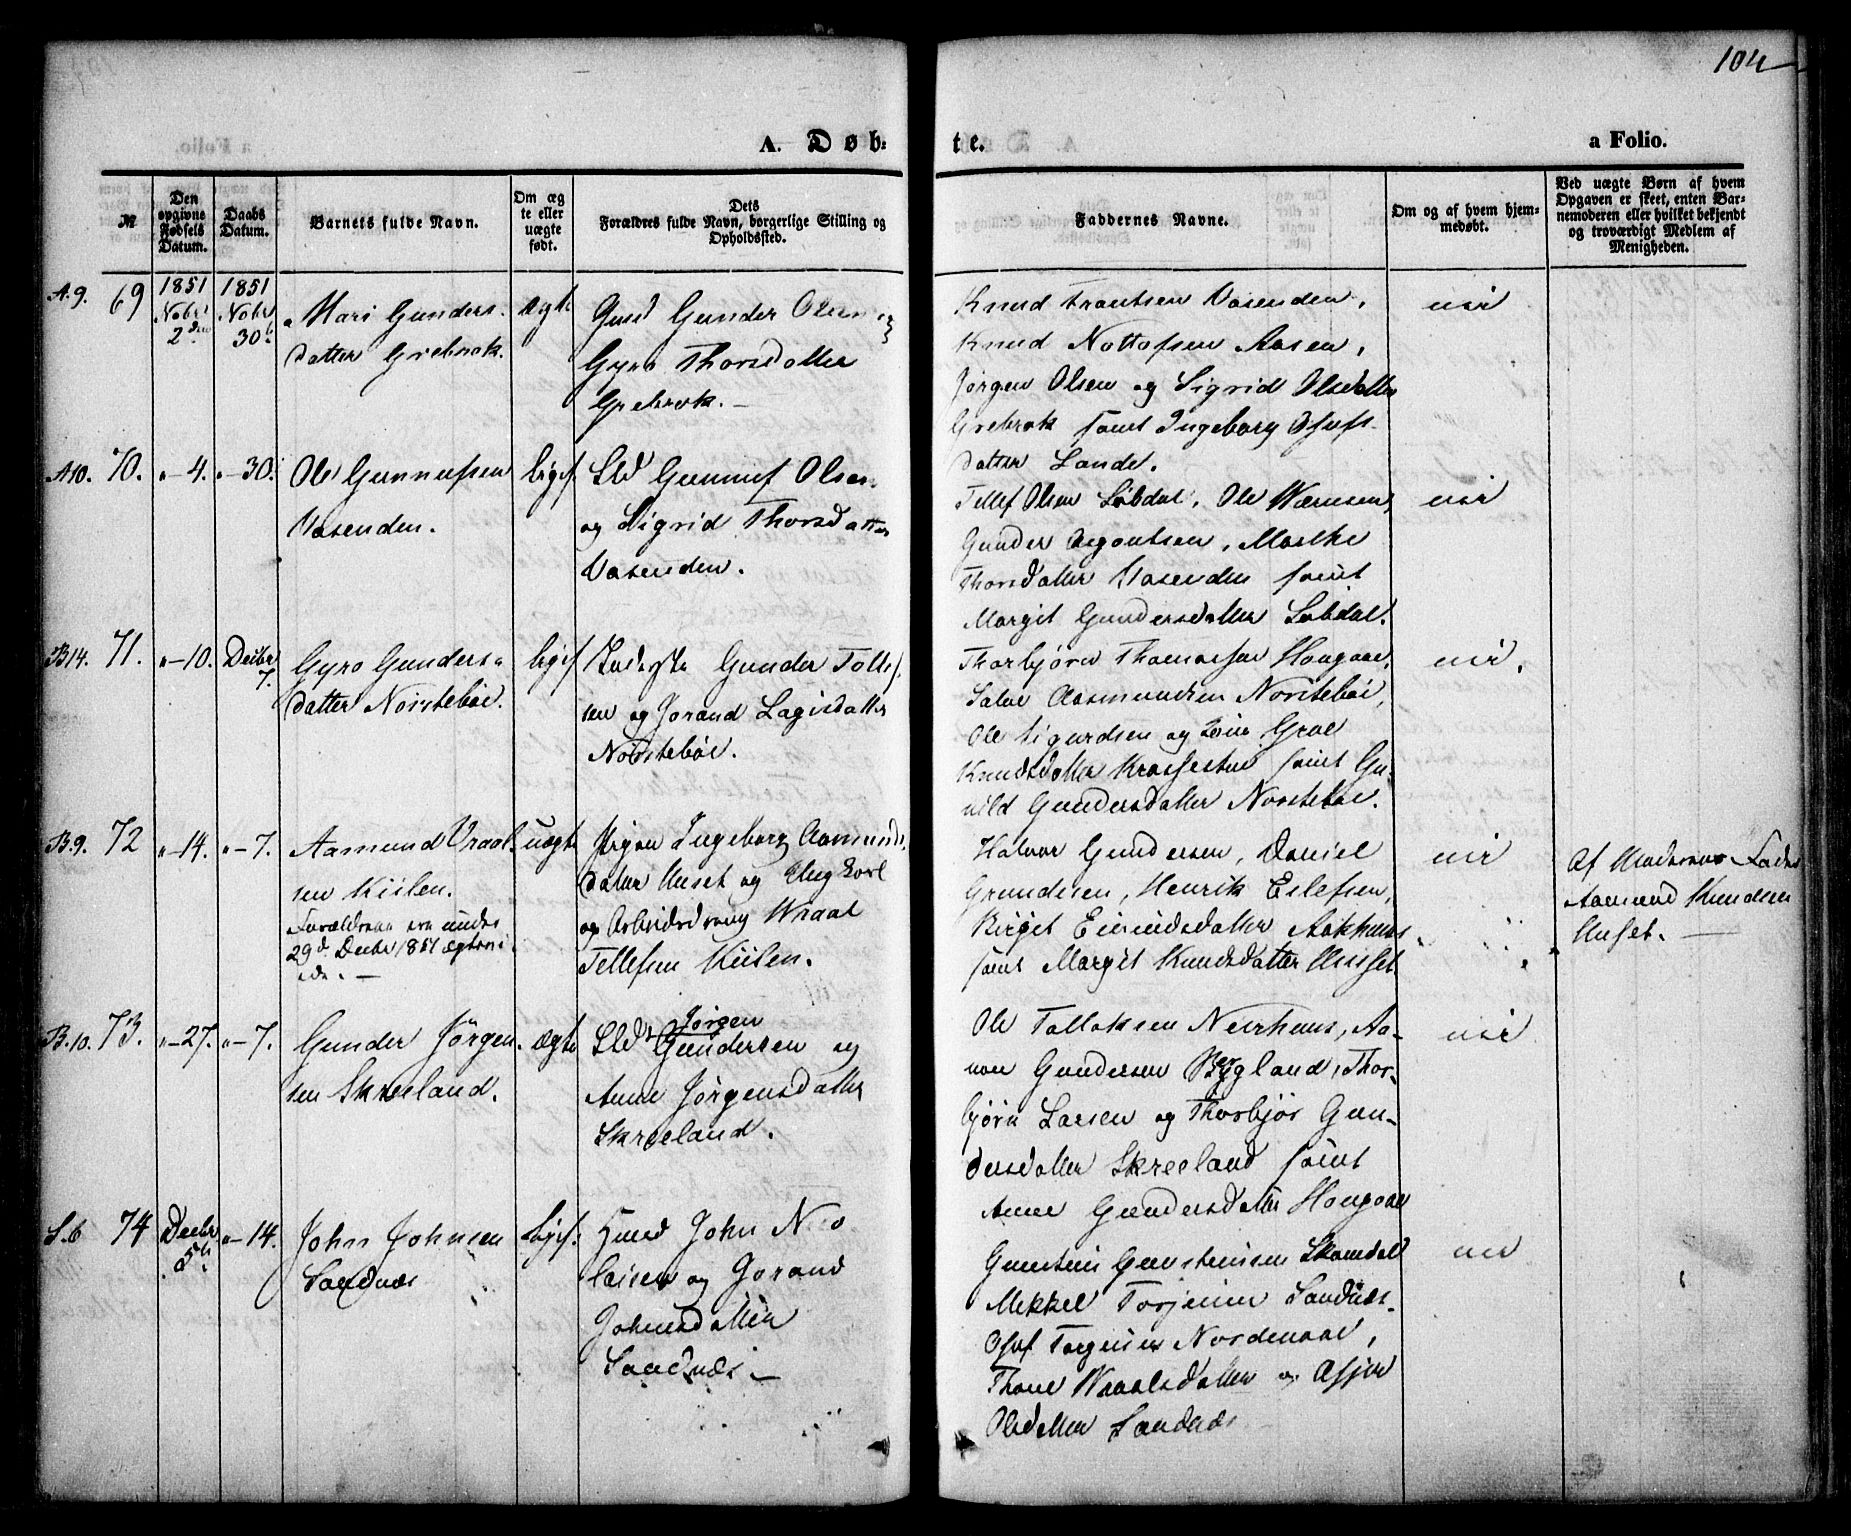 104
A. Døb-
te.
a Folio.
№
Den opgivne Fødsels Datum.
Daabs Datum.
Barnets fulde Navn.
Om ægte eller uægte født.
Dets Forældres fulde Navn, borgerlige Stilling og Opholdssted.
Faddernes Navne.
Om og af hvem hjemmedøbt.
Ved uægte Børn af hvem Opgaven er skeet, enten Barnemoderen eller hvilket bekjendt og troværdigt Medlem af Menigheden.
A.9. 69
1851 Nobr 2den
1851 Nobr 30te
Mari Gunders-
datter Grebrok.
ægte
Gmd Gunder Olsen og
Gyro Thorsdatter
Grebrok.
Knud Trondsen Vasenden,
Knud Nottofsen Aasen,
Jørgen Olsen og Sigrid Olsdatter
Grebrok samt Ingeborg Osufs-
datter Lande.
nei
A10. 70.
"-4.
"-30.
Ole Gunnufsen
Vasenden.
ligef.
Lld Gunnuf Olsen
og Sigrid Thorsdatter
Vasenden.
Tellef Olsen Løbdal, Ole
Gunder Aegontsen, Marthe
Thorsdatter Vasenden samt
Margit Gundersdatter Løbdal.
nei
B14. 71.
"-10.
Decbr 7.
Gyro Gunders-
datter Norstebøe.
ligef
Gunder Tellef-
sen og Jorand Lagisdatter
Norstebøe.
Thorbjørn Thomassen Hougaae,
Salve Aasmundsen Norstebøe,
Ole Sigurdsen og Groe
Knudsdatter samt Gu-
nild Gundersdatter Norstebøe.
nei.
B.9. 72
"-14.
"-7.
Aamund Vraal-
sen Kiilen.
Forældrene ere under
29d Decbr 1851 ægtevi-
ede.
uægte
Pigen Ingeborg Aamunds-
datter Uuset og Ungkarl
og Arbeidsdreng Wraal
Tellefsen Kiilen.
Halvor Gundersen, Daniel
Gundersen, Henrik Eilefsen,
Birgit Eivindsdatter Aakhuus
samt Margit Knudsdatter Uuset
nei
Af Moderens Fader
Aamund Knudsen
Uuset.
B.10. 73.
"-27.
"-7.
Gunder Jørgen-
sen Skreeland.
ægte
Lld Jørgen
Gundersen og
Anne Jørgensdatter
Skreeland.
Ole Tallaksen Neirhuus, Aa-
non Gundersen Bygland, Thor-
bjørn Larsen og Thorbjør Gun-
dersdatter Skreeland samt
Anne Gundersdatter Hougaae
nei
S.6 74
Decbr 5te
"-14.
John Johnsen
Sandnæs
ligef.
Hmd John Nico
laisen og Gorand
Johnsdatter
Sandnæs
Gunsteen Gunsteinsen Skomdal
Mikkel Torjusen Sandnæs-
Osuf Torgeirsen Nordenaae,
Thone Wraalsdatter og Asjer
Olsdatter Sandnæs
nei